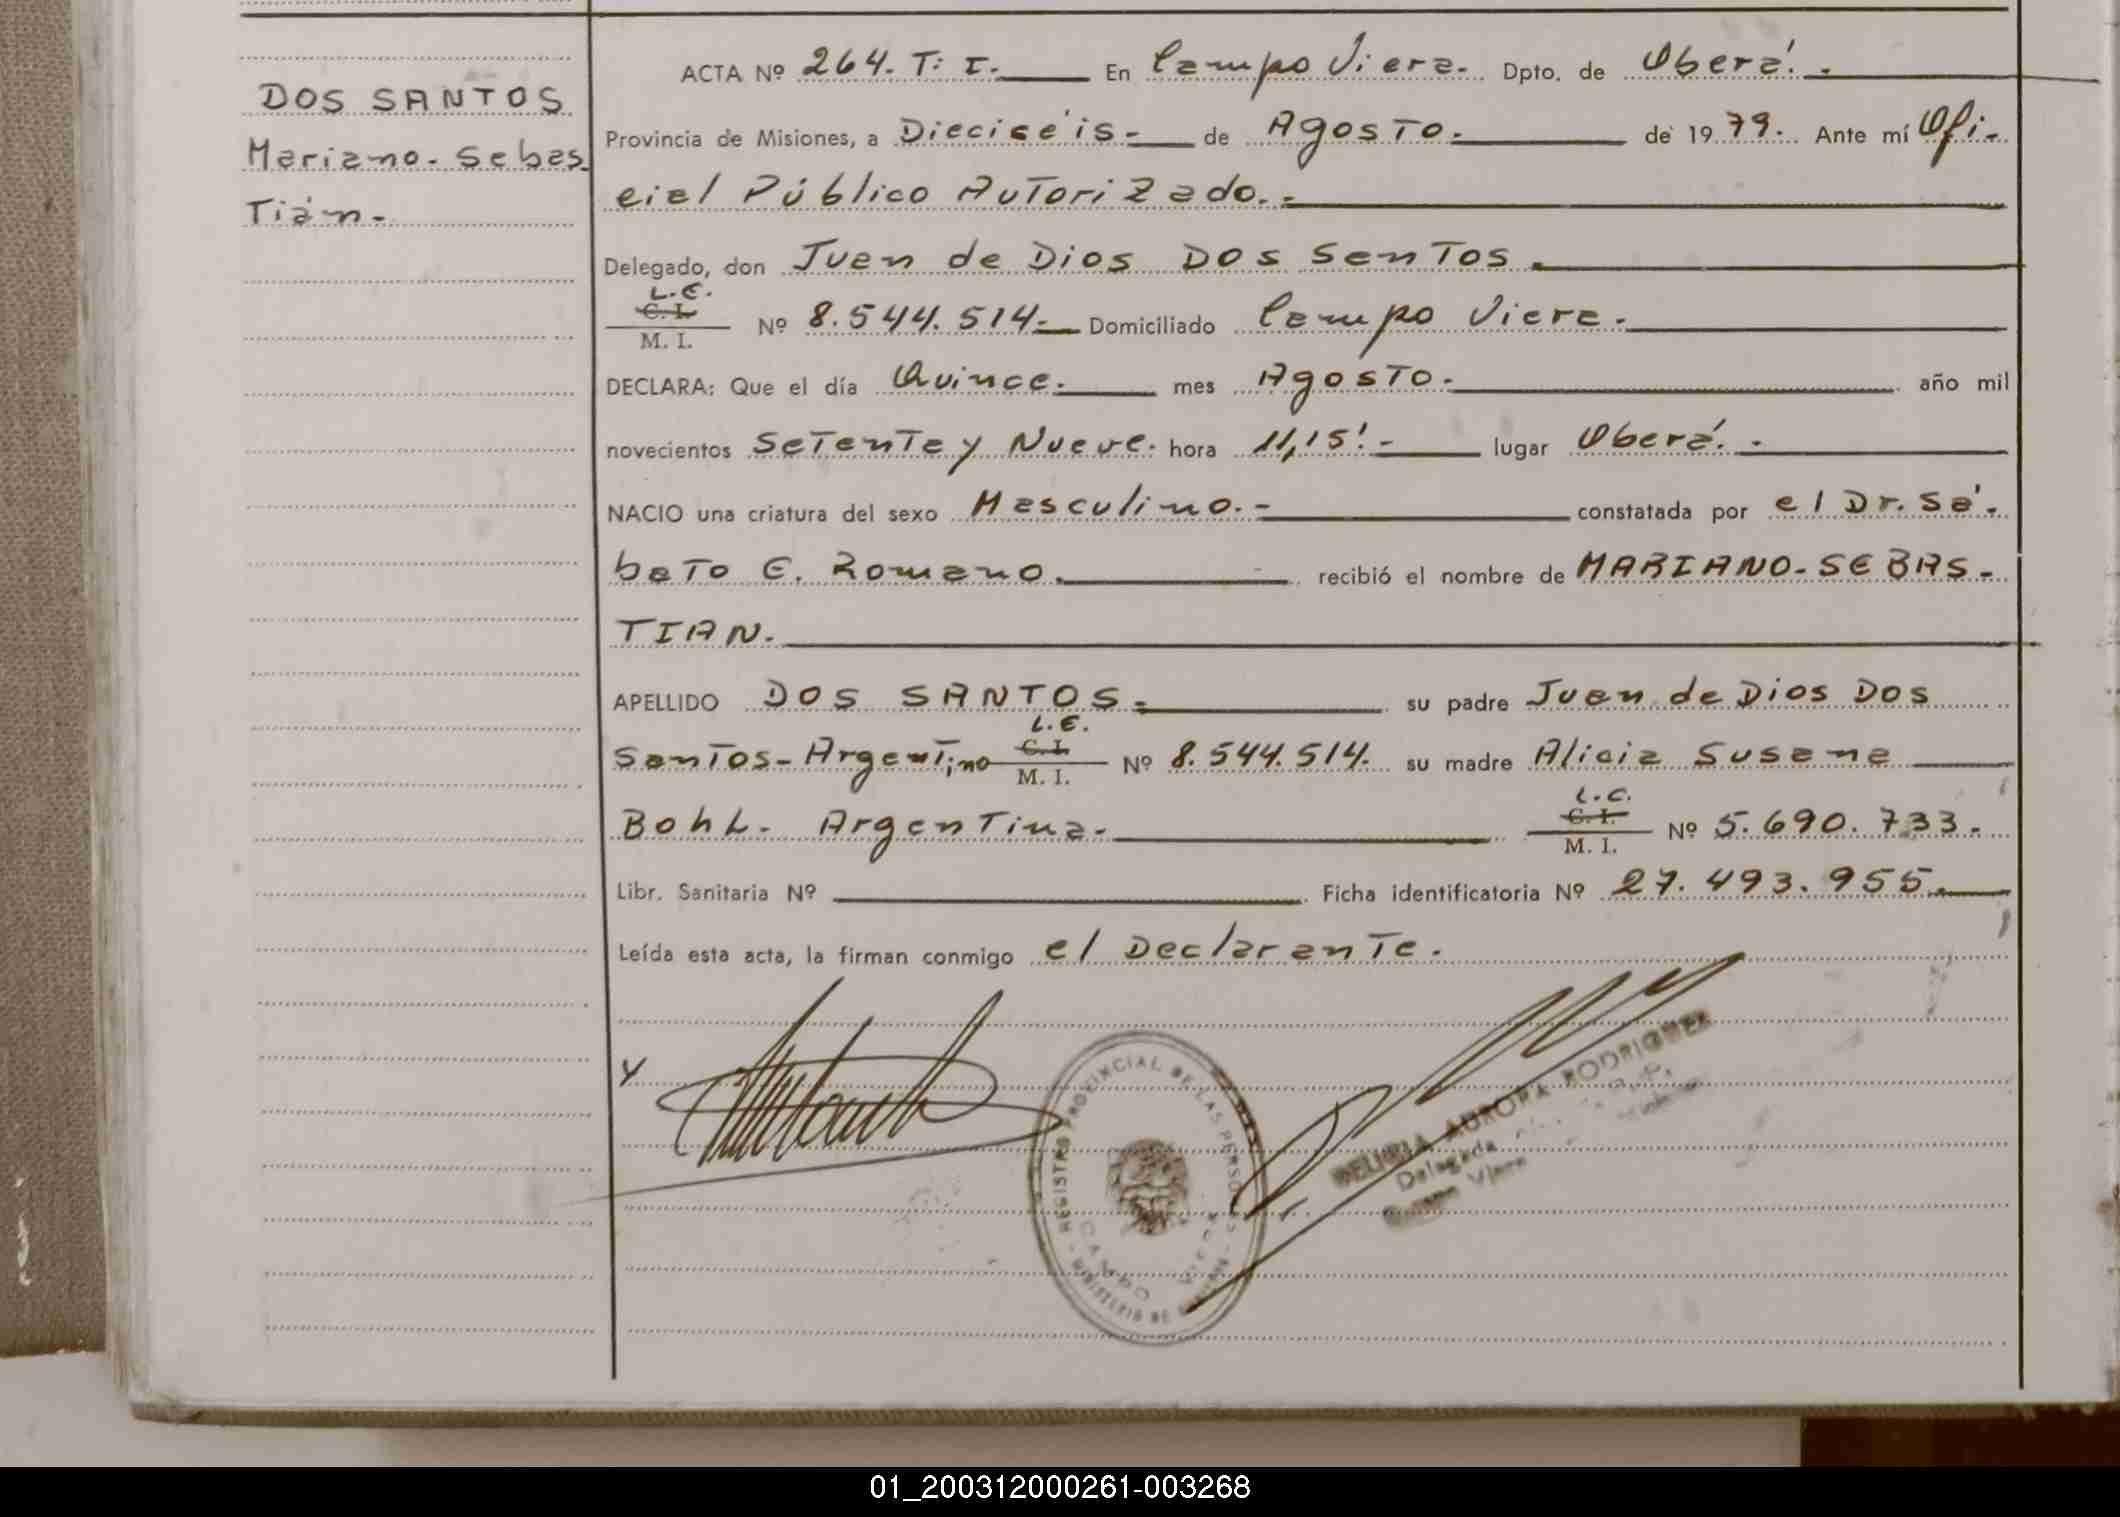 DOS SANTOS
Mariano-Sebas
Tián.-
ACTA Nº 264. T: I. En Campo Viera. Dpto. de Oberá. -
Provincia de Misiones, a Dieciséis.- de Agosto.- de 1979. Ante mí Ofi-
cial Público Autorizado.-
Delegado, don Juan de Dios Dos Santos.
L.E.
C. I.
M. I. Nº 8.544.514.- Domiciliado Campo Viera.
DECLARA: Que el día Quince. mes Agosto.- año mil
novecientos Setenta y Nueve. hora 11,15'.- lugar Oberá. -
NACIO una criatura del sexo Masculino.- constatada por el Dr. Sa-
bato E. Romano. recibió el nombre de MARIANO-SEBAS-
TIAN.
APELLIDO DOS SANTOS.- su padre Juan de Dios Dos
L.E.
Santos- Argentino C. I. M. I. Nº 8.544.514. su madre Alicia Susana
L.C.
Bohl- Argentina.- C. I. M. I. Nº 5.690.733.
Libr. Sanitaria Nº Ficha identificatoria Nº 27.493.955.
Leída esta acta, la firman conmigo el Declarante.
REGISTRO PROVINCIAL DE LAS PERSONAS
CAMPO VIERA
MINISTERIO DE
AURORA RODRIGUEZ
Delegada
Viera
01_200312000261-003268